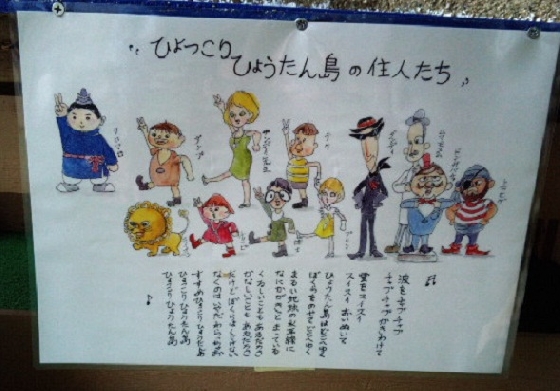 ひょっこり
ひょうたん島の住人たち
波をチャプチャプ
チャプチャプかきわけて
雲をスイスイ
スイスイ おいぬいて
ひょうたん島はどこへゆく
ぼくらをのせてどこへゆく
まるい地球の水平線に
なにかがきっと まっている
くるしいこともあるだろう
かなしいことも あるだろう
だけどぼくらはくじけない
なくのはいやだ わらっちゃお
すすめ ひょっこりひょうたん島
ひょっこりひょうたん島
ひょっこりひょうたん島